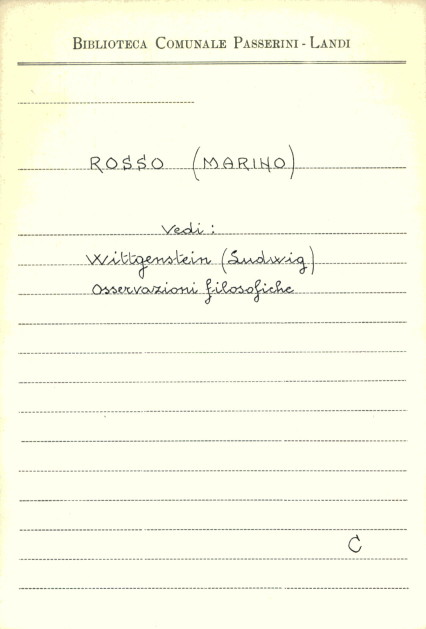 BIBLIOTECA COMUNALE PASSERINI - LANDI
ROSSO (MARINO)
Vedi :
Wittgenstein (Ludwig)
Osservazioni filosofiche
C